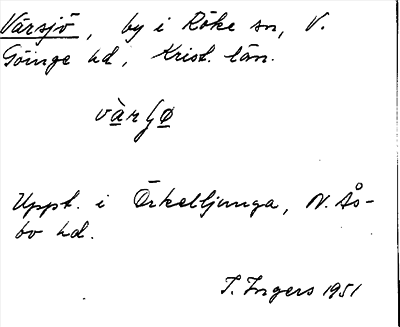 Värsjö, by i Röke sn, V.
Göinge hd, Krist. län.
Uppt. i Örkelljunga, N. Ås-
bo hd.
I. Ingers 1951